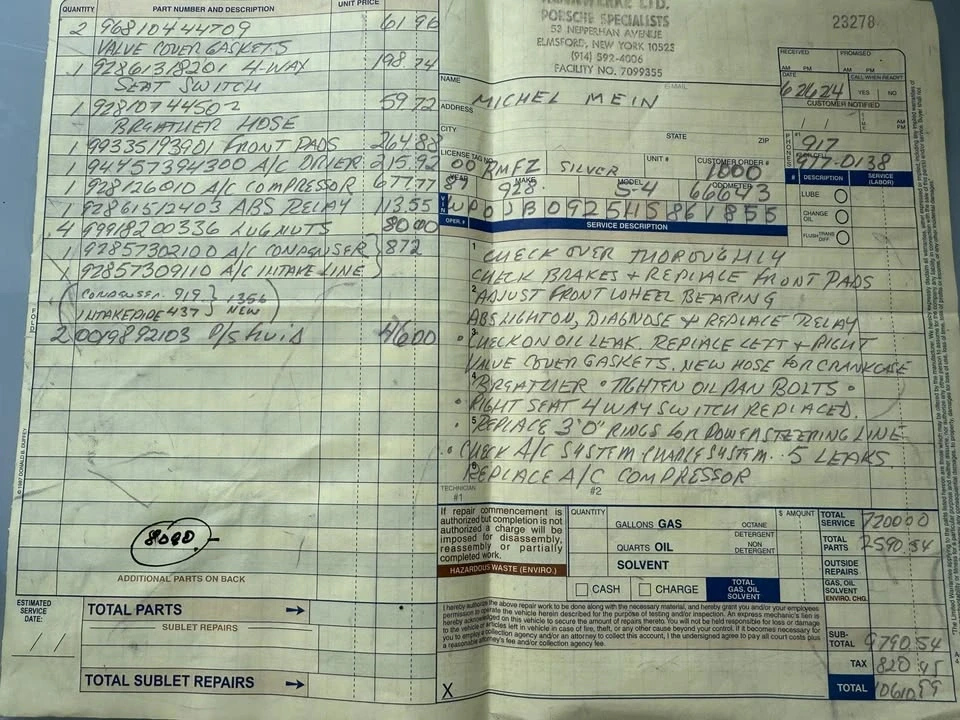 QUANTITY PART NUMBER AND DESCRIPTION UNIT PRICE
2 96810444709 61 96
VALVE COVER GASKETS
1 92861318201 4-WAY 198 74
SEAT SWITCH
1 92810744502 59 72
BREATHER HOSE
1 99335193901 FRONT PADS 264.88
1 94457394300 A/C DRIER 215.92
1 928126010 A/C COMPRESSOR 677.77
1 92861512403 ABS RELAY 113.55
4 99918200336 LUGNUTS 80 00
1 92857302100 A/C CONDENSER } 872
1 92857309110 A/C INTAKE LINE }
( CONDENSER 919 } 1356
INTAKE PIPE 437 } NEW )
2 0019892103 P/S fluid 46 00
© 1997 DONALD B. DUFFEY
8000.-
ADDITIONAL PARTS ON BACK
ESTIMATED
SERVICE
DATE:
/ /
TOTAL PARTS
SUBLET REPAIRS
TOTAL SUBLET REPAIRS
LTD.
PORSCHE SPECIALISTS
53 NEPPERHAN AVENUE
ELMSFORD, NEW YORK 10523
(914) 592-4006
FACILITY NO. 7099355
23278
RECEIVED PROMISED
AM PM AM PM
DATE CALL WHEN READY?
62624 YES NO
CUSTOMER NOTIFIED
/ / TIME AM PM
NAME E-MAIL
MICHEL MEIN
ADDRESS
CITY STATE ZIP
PHONES #1 917
977-0138
LICENSE TAG NO. UNIT # CUSTOMER ORDER #
SILVER 1000
YEAR MAKE MODEL ODOMETER
89 928 S-4 66643
VIN WP0JB0925KS861855
# DESCRIPTION SERVICE (LABOR)
LUBE
CHANGE OIL
FLUSH TRANS DIFF
OPER. # SERVICE DESCRIPTION
1 CHECK OVER THOROUGHLY
CHECK BRAKES + REPLACE FRONT PADS
2 ADJUST FRONT WHEEL BEARING
ABS LIGHT ON, DIAGNOSE + REPLACE RELAY
3 • CHECK ON OIL LEAK. REPLACE LEFT + RIGHT
VALVE COVER GASKETS. NEW HOSE FOR CRANKCASE
4 BREATHER • TIGHTEN OIL PAN BOLTS •
• RIGHT SEAT 4 WAY SWITCH REPLACED.
5 • REPLACE 3 "O" RINGS FOR POWER STEERING LINE
• CHECK A/C SYSTEM CHARGE SYSTEM. 5 LEAKS
6 REPLACE A/C COMPRESSOR
TECHNICIAN
#1 #2
If repair commencement is
authorized but completion is not
authorized a charge will be
imposed for disassembly,
reassembly or partially
completed work.
HAZARDOUS WASTE (ENVIRO.)
QUANTITY $ AMOUNT
GALLONS GAS OCTANE
DETERGENT
QUARTS OIL NON DETERGENT
SOLVENT
CASH CHARGE TOTAL GAS, OIL SOLVENT
TOTAL SERVICE 7200 00
TOTAL PARTS 2590.54
OUTSIDE REPAIRS
GAS, OIL SOLVENT ENVIRO. CHG.
SUB-TOTAL 9790.54
TAX 820.45
TOTAL 10610.99
I hereby authorize the above repair work to be done along with the necessary material, and hereby grant you and/or your employees
permission to operate the vehicle herein described for the purpose of testing and/or inspection. An express mechanic's lien is
hereby acknowledged on this vehicle to secure the amount of repairs thereto. You will not be held responsible for loss or damage
to vehicle or articles left in vehicle in case of fire, theft, or any other cause beyond your control. If it becomes necessary for
you to employ a collection agency and/or an attorney to collect this account, I the undersigned agree to pay all court costs plus
a reasonable attorney's fee and/or collection agency fee.
X